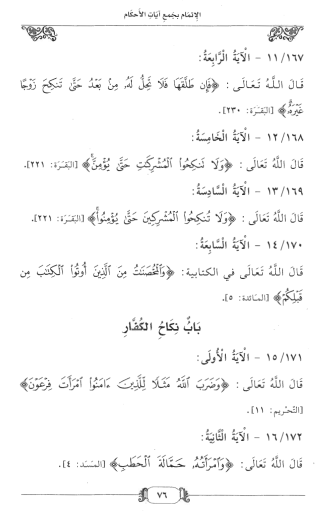 الإتمام بجمع آيات الأحكام
١١/١٦٧ - الْآيَةُ الرَّابِعَةُ:
قَالَ اللَّهُ تَعَالَى: ﴿فَإِن طَلَّقَهَا فَلَا تَحِلُّ لَهُ مِنْ بَعْدُ حَتَّىٰ تَنكِحَ زَوْجًا
غَيْرَهُ﴾ [البقرة: ٢٣٠].
١٢/١٦٨ - الْآيَةُ الْخَامِسَةُ:
قَالَ اللَّهُ تَعَالَى: ﴿وَلَا تَنكِحُوا الْمُشْرِكَٰتِ حَتَّىٰ يُؤْمِنَّ﴾ [البقرة: ٢٢١].
١٣/١٦٩ - الْآيَةُ السَّادِسَةُ:
قَالَ اللَّهُ تَعَالَى: ﴿وَلَا تُنكِحُوا الْمُشْرِكِينَ حَتَّىٰ يُؤْمِنُوا﴾ [البقرة: ٢٢١].
١٤/١٧٠ - الْآيَةُ السَّابِعَةُ:
قَالَ اللَّهُ تَعَالَى في الكتابية: ﴿وَالْمُحْصَنَٰتُ مِنَ الَّذِينَ أُوتُوا الْكِتَٰبَ مِن
قَبْلِكُمْ﴾ [المائدة: ٥].
بَابُ نِكَاحِ الكُفَّارِ
١٥/١٧١ - الْآيَةُ الْأُولَى:
قَالَ اللَّهُ تَعَالَى: ﴿وَضَرَبَ اللَّهُ مَثَلًا لِّلَّذِينَ ءَامَنُوا امْرَأَتَ فِرْعَوْنَ﴾
[التحريم: ١١].
١٦/١٧٢ - الْآيَةُ الثَّانِيَةُ:
قَالَ اللَّهُ تَعَالَى: ﴿وَامْرَأَتُهُ حَمَّالَةَ الْحَطَبِ﴾ [المسد: ٤].
٧٦